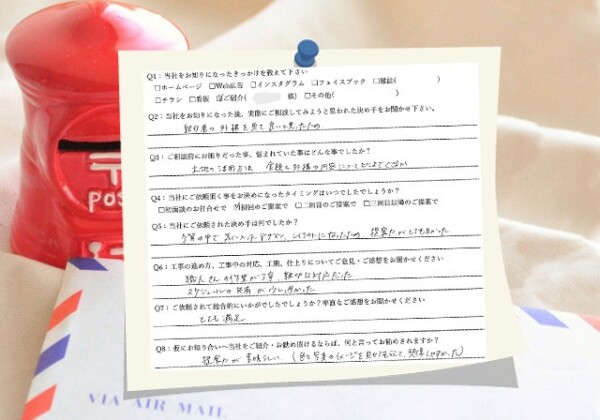 〒
POST
Q1：当社をお知りになったきっかけを教えて下さい
□ホームページ □Web広告 □インスタグラム □フェイスブック □雑誌( )
□チラシ □看板 ☑ご紹介( 様) □その他( )
Q2：当社をお知りになった後、実際にご相談してみようと思われた決め手をお聞かせ下さい。
紹介者の外構を見て良いと思ったため
Q3：ご相談前にお困りだった事、悩まれていた事はどんな事でしたか？
土地の活用方法 金額と外構の内容について
Q4：当社にご依頼頂く事をお決めになったタイミングはいつでしたでしょうか？
□初面談のお打合せで ☑初回のご提案で □二回目のご提案で □三回目以降のご提案で
Q5：当社にご依頼された決め手は何でしたか？
予算の中で 気に入ったデザイン、 になったため 提案力がとても良かった
Q6：工事の進め方、工事中の対応、工期、仕上りについてご意見・ご感想をお聞かせください
職人さんの作業が丁寧、親切な対応だった
スケジュールの共有が
Q7：ご依頼されて総合的にいかがでしたでしょうか？率直なご感想をお聞かせください
とても満足
Q8：仮にお知り合いへ当社をご紹介・お勧め頂けるならば、何と言ってお勧めされますか？
提案力が素晴らしい (色々写真のイメージを見せてもらえて、想像しやすかった)
VIA AIR MAIL